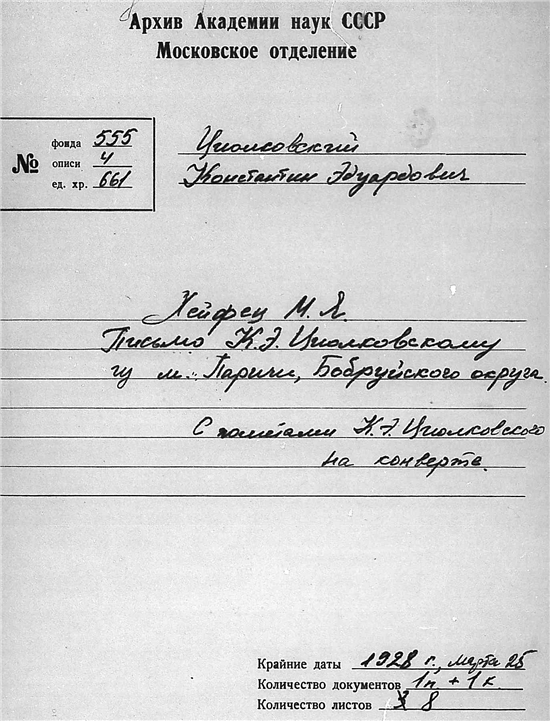 Архив Академии наук СССР
Московское отделение
№
фонда 555
описи 4
ед. хр. 661
Циолковский
Константин Эдуардович
Хейфец М. Я.
Письмо К.Э. Циолковскому
из м. Паричи, Бобруйского округа.
С пометами К.Э. Циолковского
на конверте.
Крайние даты 1928 г., марта 25
Количество документов 1п + 1к.
Количество листов 8